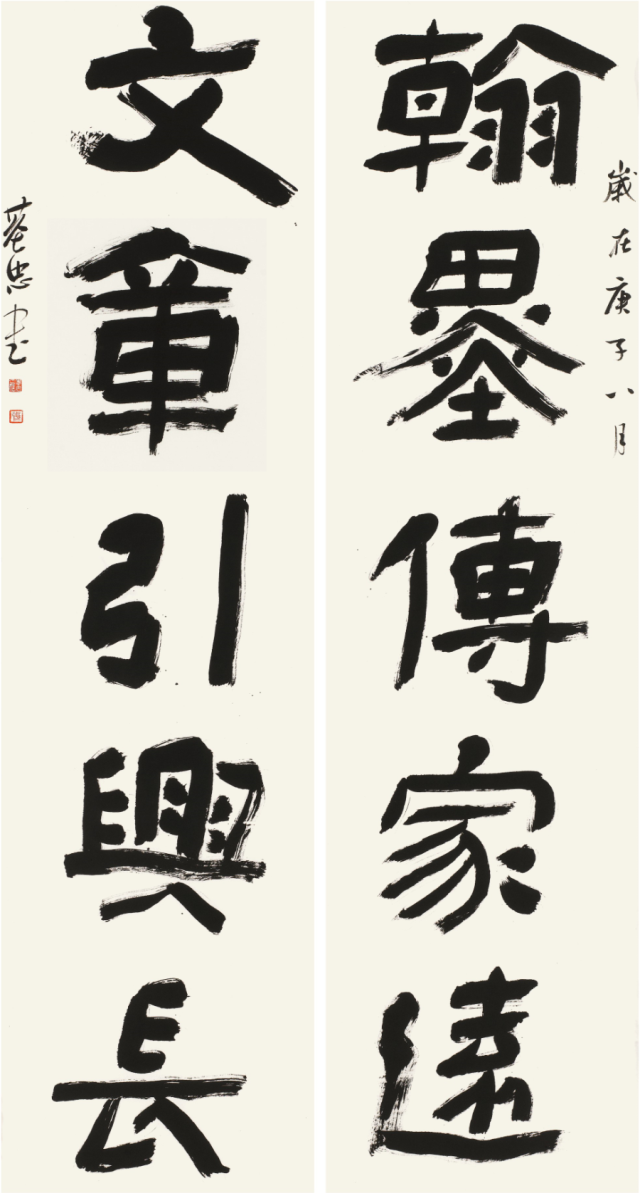 翰墨傳家遠
歲在庚子八月
文章引興長
忠書